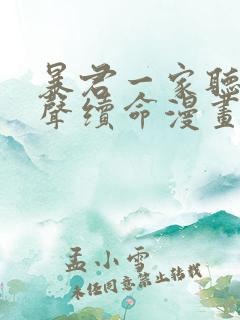 暴君一家聽
聲續命漫畫
孟小雪
未經同意禁止轉載